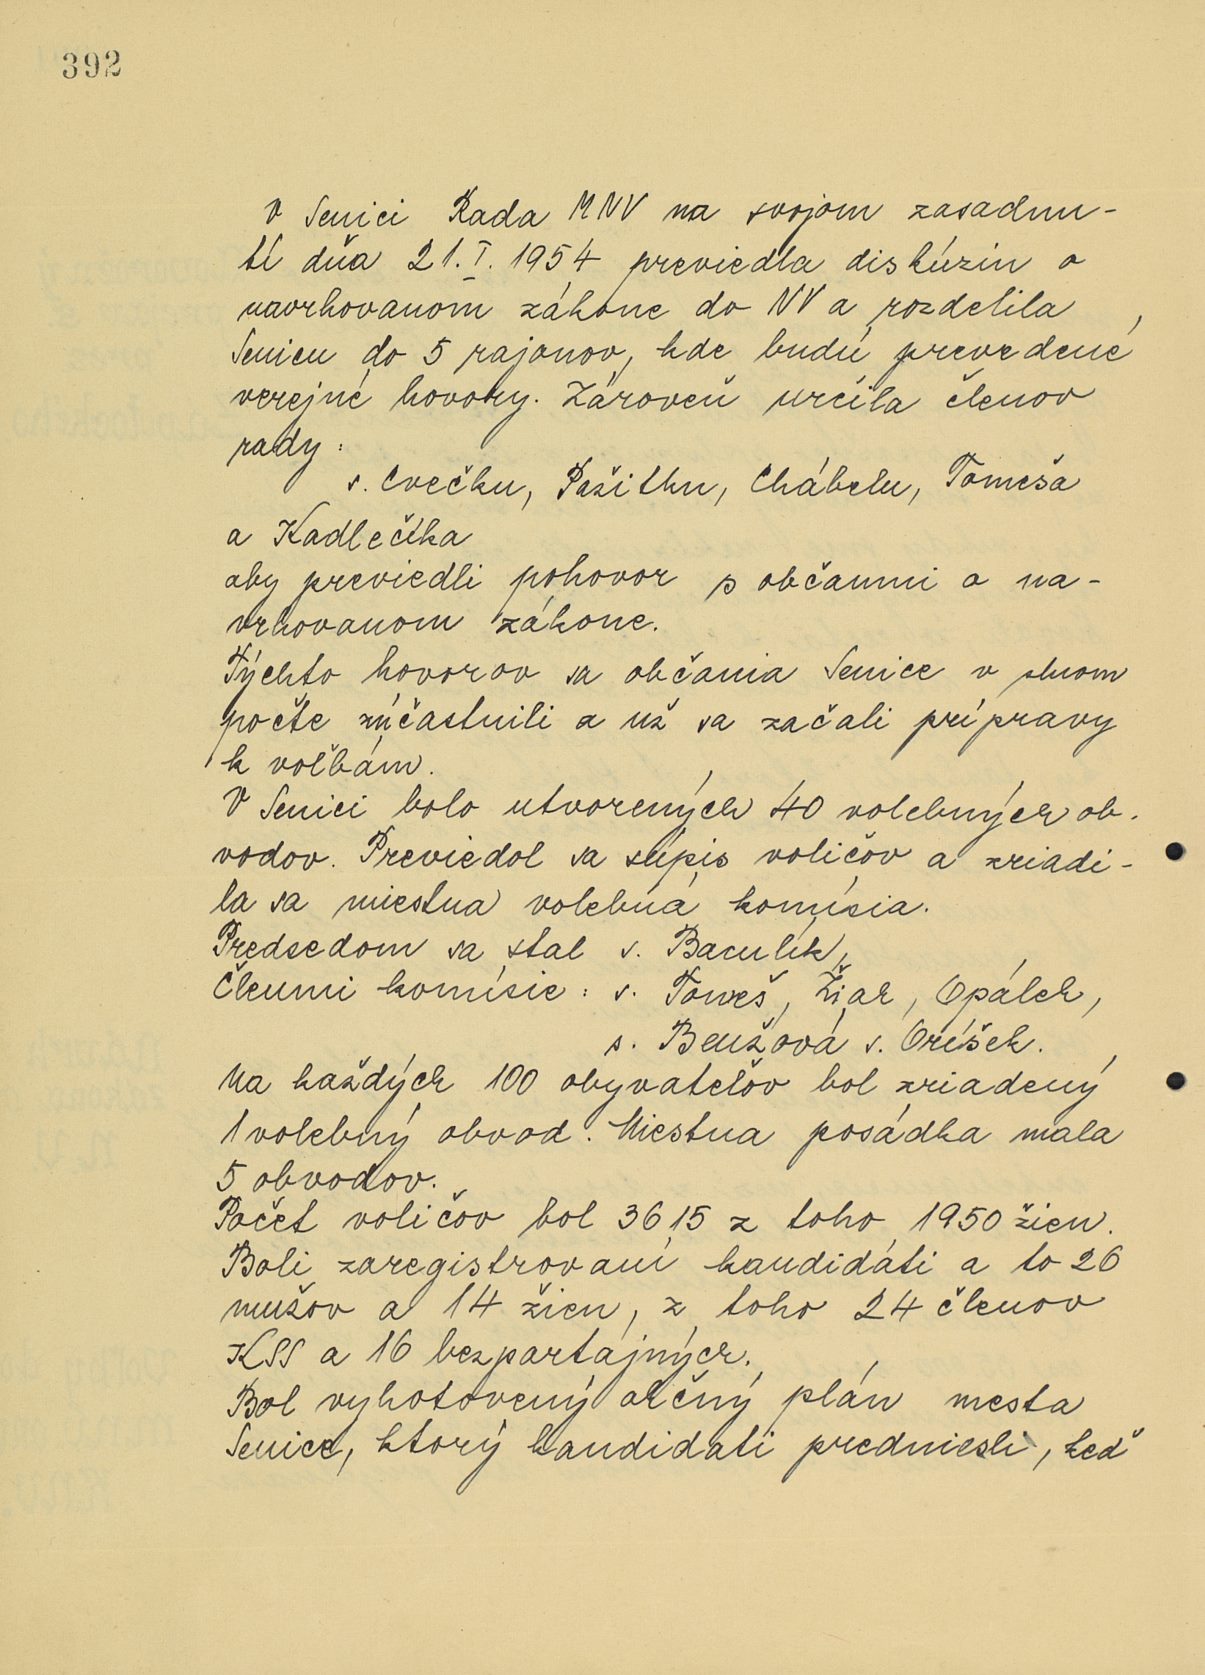 392
V Senici Rada MNV na svojom zasadnu-
tí dňa 21. I. 1954 previedla diskúziu o
navrhovanom zákone do NV a rozdelila
Senicu do 5 rajonov, kde budú prevedené
verejné hovory. Zároveň určila členov
rady:
s. Cvečku, Pažitku, Chábelu, Tomeša
a Kadlečíka
aby previedli pohovor s občanmi o na-
vrhovanom zákone.
Týchto hovorov sa občania Senice v plnom
počte zúčastnili a už sa začali prípravy
k voľbám.
V Senici bolo utvorených 40 volebných ob-
vodov. Previedol sa súpis voličov a zriadi-
la sa miestna volebná komísia.
Predsedom sa stal s. Baculík,
Členmi komísie: s. Tomeš, Žiak, Opálek,
s. Benžová s. Oríšek.
Na každých 100 obyvateľov bol zriadený
1 volebný obvod. Miestna posádka mala
5 obvodov.
Počet voličov bol 3615 z toho 1950 žien.
Boli zaregistrovaní kandidáti a to 26
mužov a 14 žien, z toho 24 členov
KSS a 16 bezpartajných.
Bol vyhotovený akčný plán mesta
Senice, ktorý kandidáti predniesli, keď